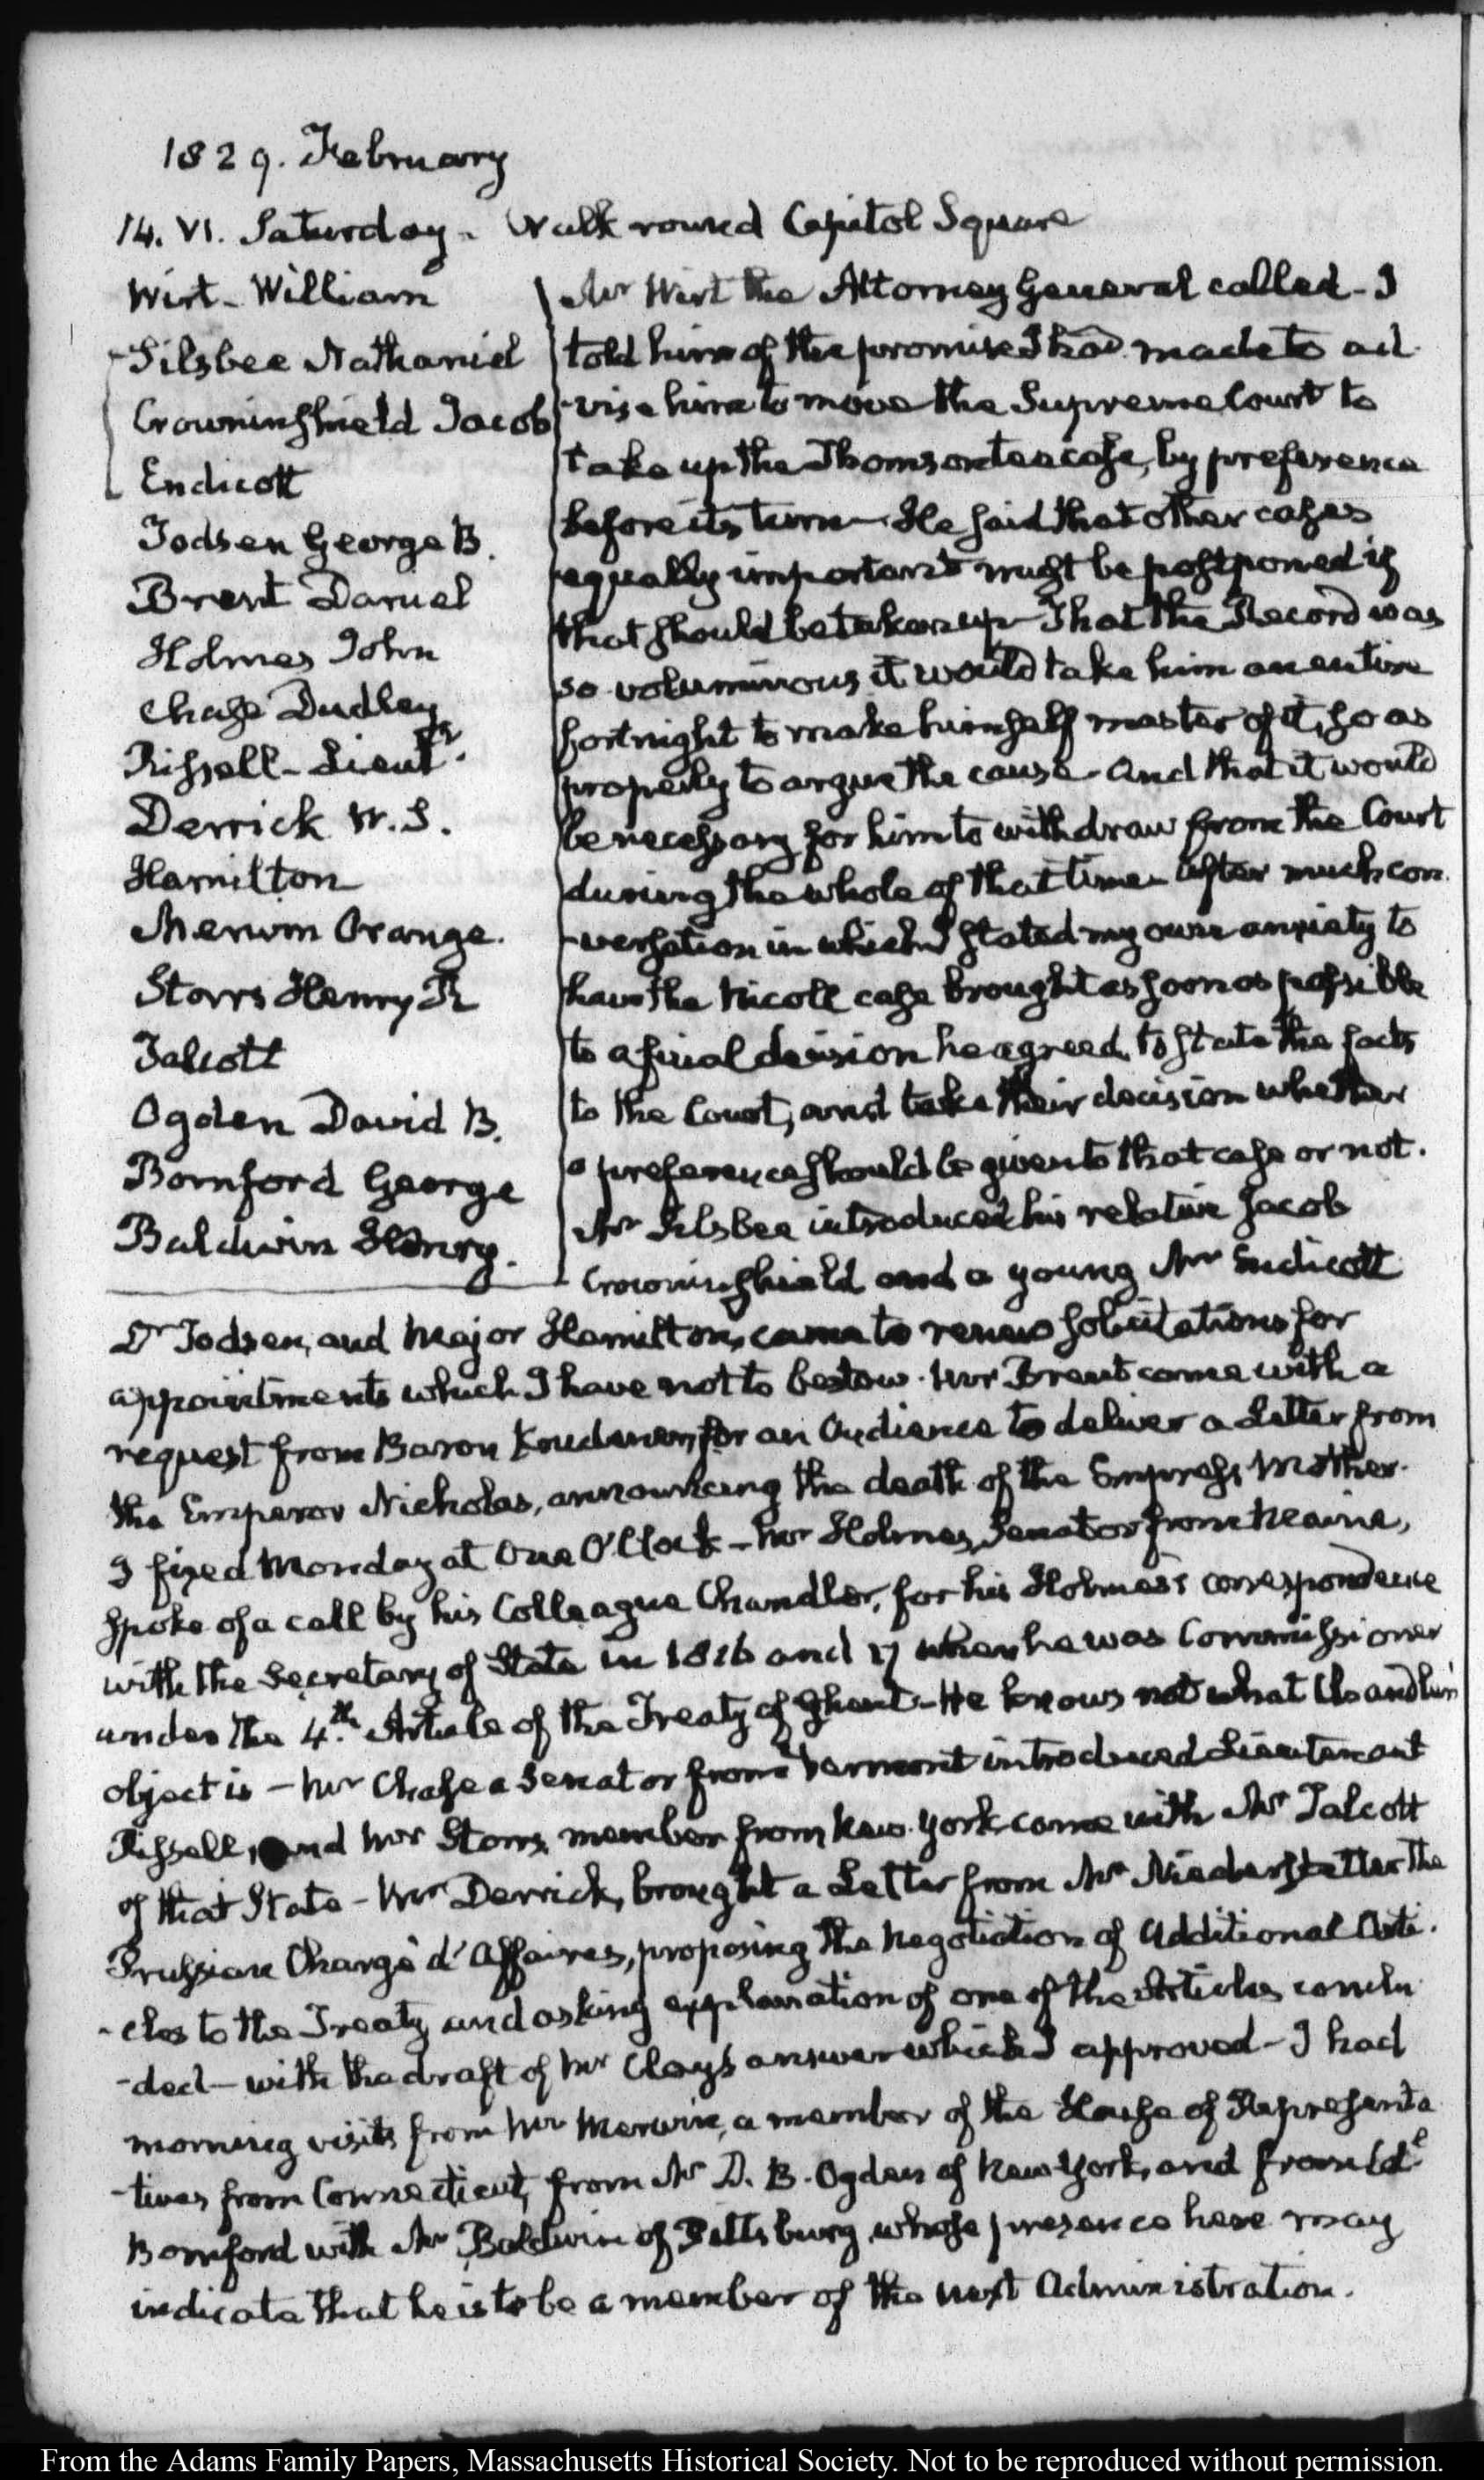 1829. February
14. VI. Saturday - Walk round Capitol Square
Wirt - William
Silsbee Nathaniel
Crowninshield Jacob
Endicott
Todsen George B.
Brent Daniel
Holmes John
Chase Dudley
Tissell - Lieutt.
Derrick W. S.
Hamilton
Merwin Orange.
Storrs Henry R
Talcott
Ogden David B.
Bomford George
Baldwin Henry.
Mr Wirt the Attorney General called - I
told him of the promise I had made to ad
-vise him to move the Supreme Court to
take up the Thomson tea case, by preference
before its turn - He said that other cases
equally important must be postponed if
that should be taken up - That the Record was
so voluminous it would take him an entire
fortnight to make himself master of it, so as
properly to argue the cause - And that it would
be necessary for him to withdraw from the Court
during the whole of that time - After much con
-versation in which I stated my own anxiety to
have the Nicoll case brought as soon as possible
to a final decision he agreed to state the facts
to the Court, and take their decision whether
a preference should be given to that case or not.
Mr Silsbee introduced his relative Jacob
Crowninshield and a young Mr Endicott
Dr Todsen, and Major Hamilton, came to renew solicitations for
appointments which I have not to bestow. Mr Brent came with a
request from Baron Krudener, for an Audience to deliver a Letter from
the Emperor Nicholas, announcing the death of the Empress Mother.
I fixed Monday at One O'Clock - Mr Holmes, Senator from Maine,
spoke of a call by his Colleague Chandler, for his Holmes's correspondence
with the Secretary of State in 1816 and 17 when he was Commissioner
under the 4.th Article of the Treaty of Ghent - He knows not what Chandler's
object is - Mr Chase a Senator from Vermont introduced Lieutenant
Tissell, and Mr Storrs, member from New-York came with Mr Talcott
of that State - Mr Derrick, brought a Letter from Mr Niederstetter the
Prussian Chargé d'Affaires, proposing the negotiation of Additional Arti.
-cles to the Treaty and asking explanation of one of the Articles conclu
-ded - with the draft of Mr Clay's answer which I approved - I had
morning visits from Mr Merwin, a member of the House of Representa
-tives from Connecticut, from Mr D. B. Ogden of New York, and from Col
Bomford with Mr Baldwin of Pittsburg whose presence here may
indicate that he is to be a member of the next Administration.
From the Adams Family Papers, Massachusetts Historical Society. Not to be reproduced without permission.